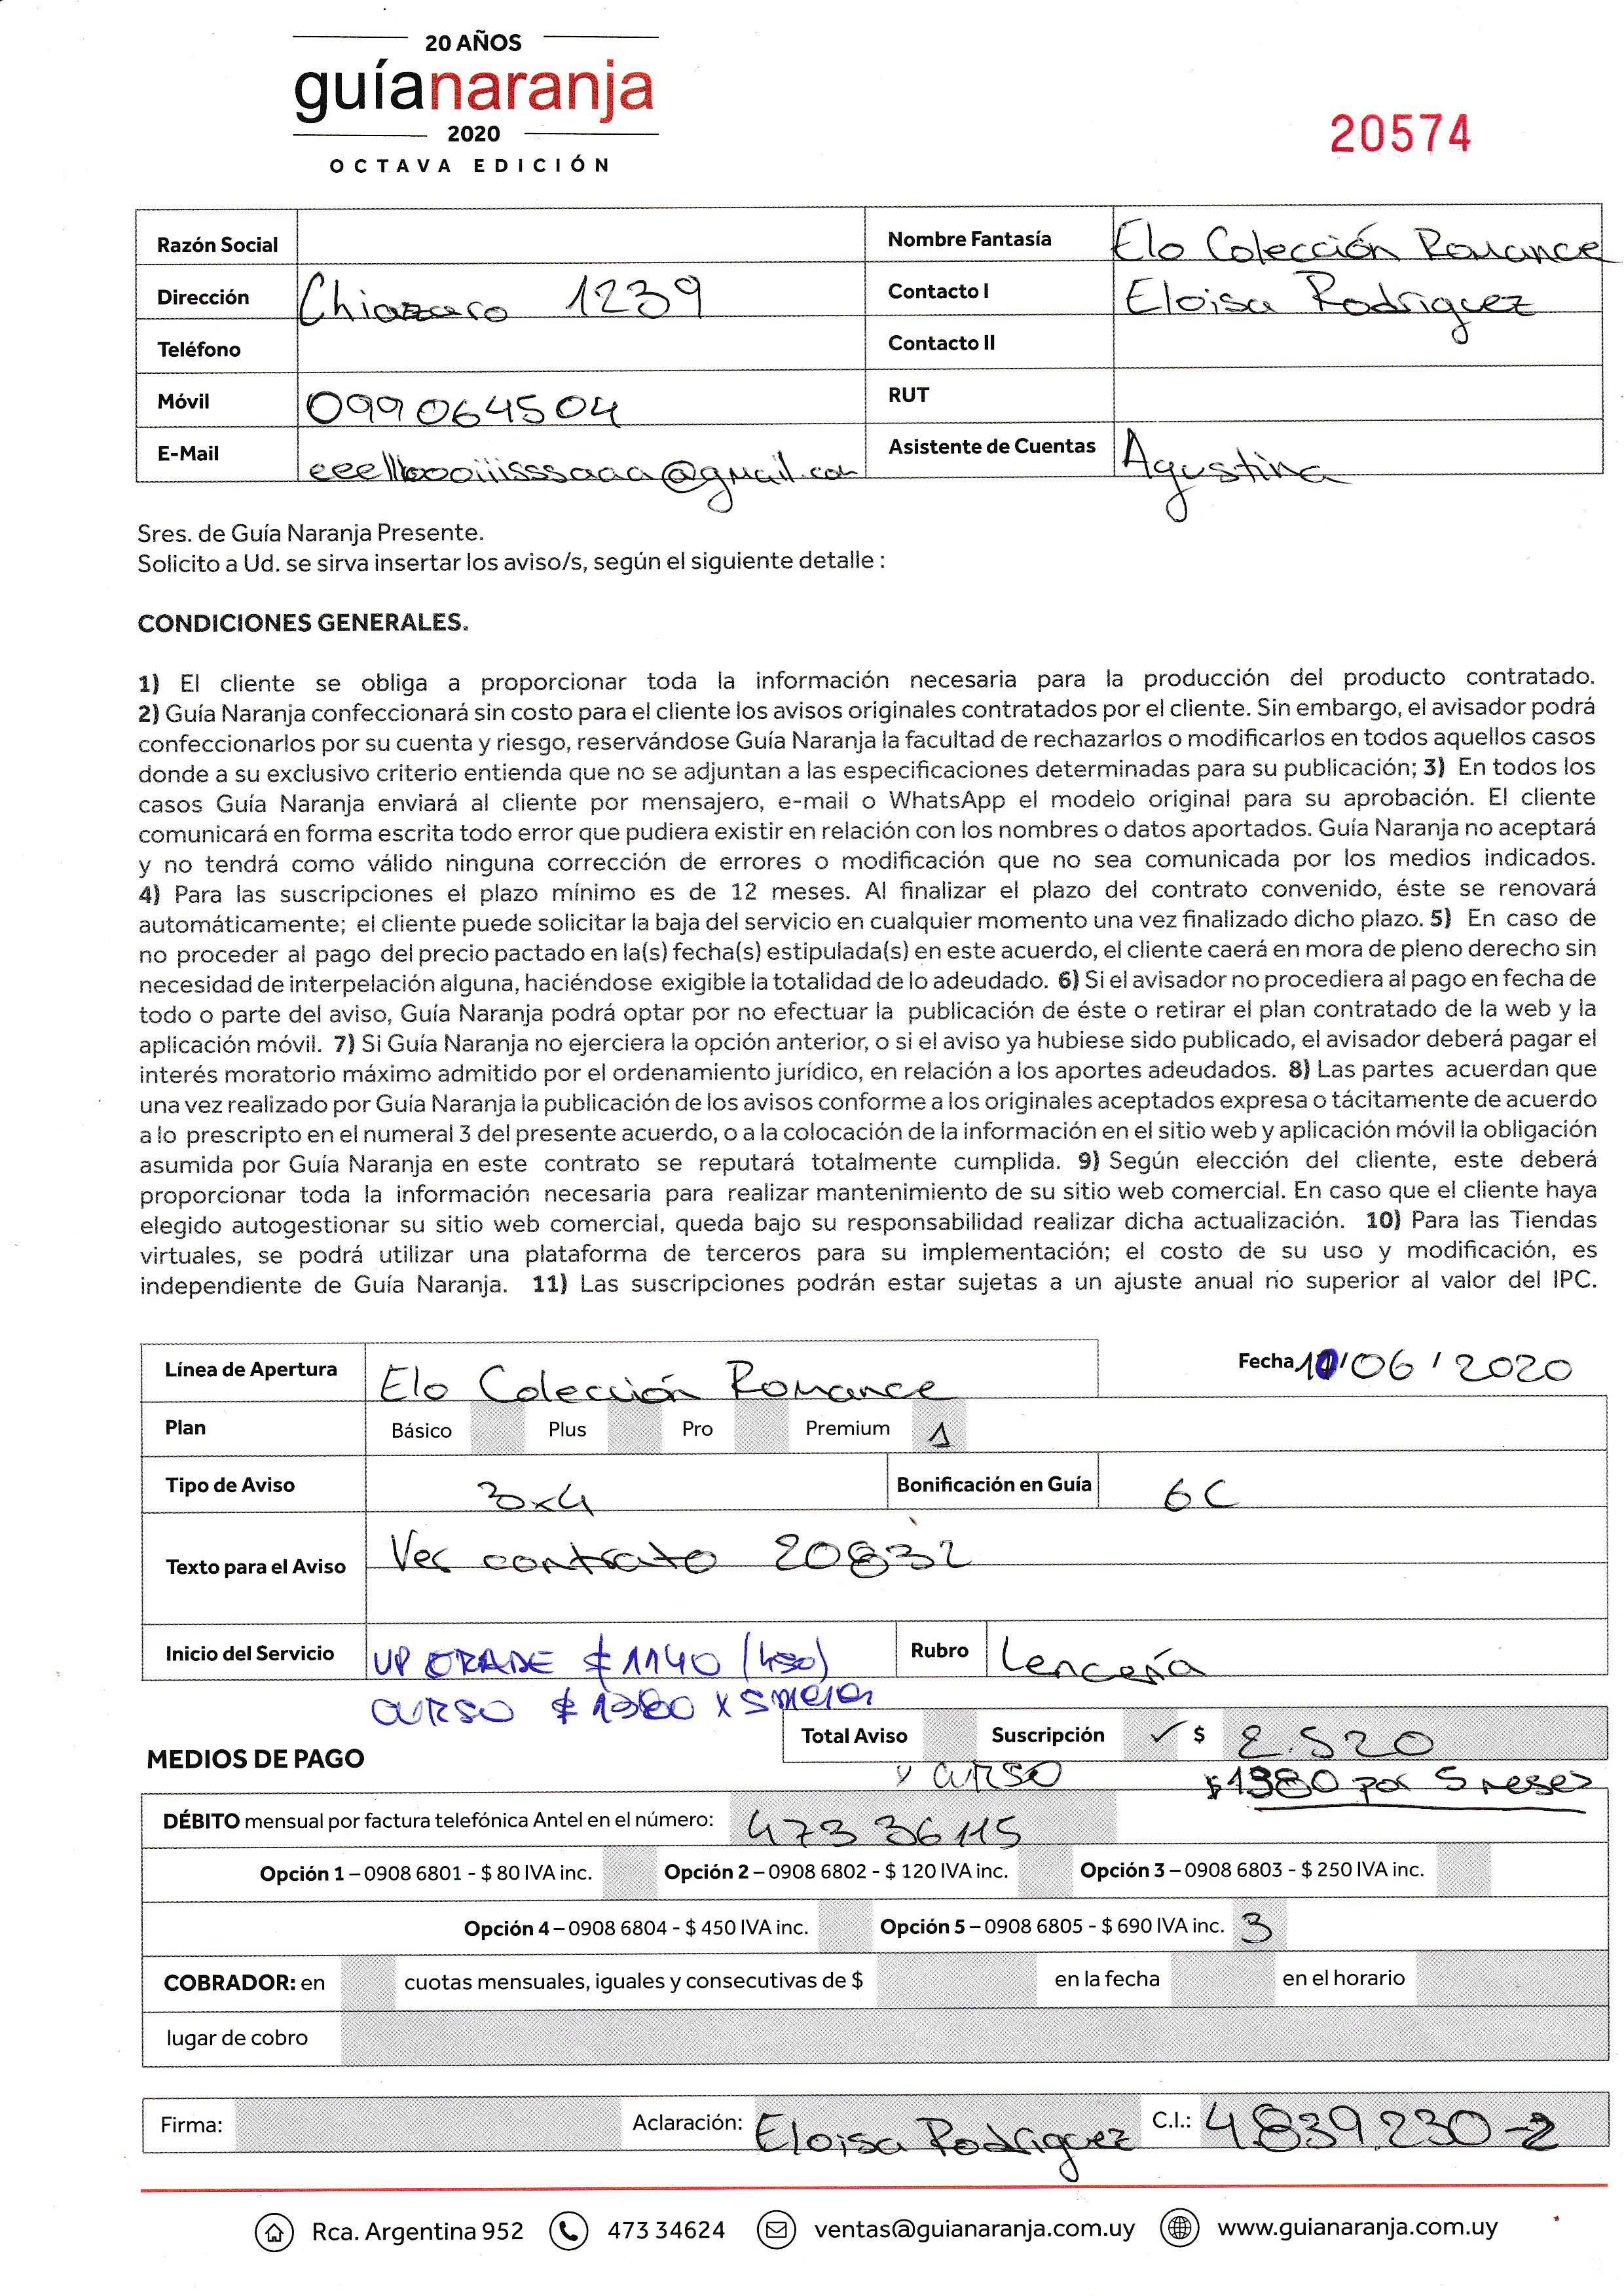 20 AÑOS
guíanaranja
2020
OCTAVA EDICIÓN
20574
Razón Social
Nombre Fantasía Elo Colección Romance
Dirección Chiazzaro 1239
Contacto I Eloisa Rodriguez
Teléfono
Contacto II
Móvil 099064504
RUT
E-Mail @gmail.com
Asistente de Cuentas Agustina
Sres. de Guía Naranja Presente.
Solicito a Ud. se sirva insertar los aviso/s, según el siguiente detalle :
CONDICIONES GENERALES.
1) El cliente se obliga a proporcionar toda la información necesaria para la producción del producto contratado.
2) Guía Naranja confeccionará sin costo para el cliente los avisos originales contratados por el cliente. Sin embargo, el avisador podrá
confeccionarlos por su cuenta y riesgo, reservándose Guía Naranja la facultad de rechazarlos o modificarlos en todos aquellos casos
donde a su exclusivo criterio entienda que no se adjuntan a las especificaciones determinadas para su publicación; 3) En todos los
casos Guía Naranja enviará al cliente por mensajero, e-mail o WhatsApp el modelo original para su aprobación. El cliente
comunicará en forma escrita todo error que pudiera existir en relación con los nombres o datos aportados. Guía Naranja no aceptará
y no tendrá como válido ninguna corrección de errores o modificación que no sea comunicada por los medios indicados.
4) Para las suscripciones el plazo mínimo es de 12 meses. Al finalizar el plazo del contrato convenido, éste se renovará
automáticamente; el cliente puede solicitar la baja del servicio en cualquier momento una vez finalizado dicho plazo. 5) En caso de
no proceder al pago del precio pactado en la(s) fecha(s) estipulada(s) en este acuerdo, el cliente caerá en mora de pleno derecho sin
necesidad de interpelación alguna, haciéndose exigible la totalidad de lo adeudado. 6) Si el avisador no procediera al pago en fecha de
todo o parte del aviso, Guía Naranja podrá optar por no efectuar la publicación de éste o retirar el plan contratado de la web y la
aplicación móvil. 7) Si Guía Naranja no ejerciera la opción anterior, o si el aviso ya hubiese sido publicado, el avisador deberá pagar el
interés moratorio máximo admitido por el ordenamiento jurídico, en relación a los aportes adeudados. 8) Las partes acuerdan que
una vez realizado por Guía Naranja la publicación de los avisos conforme a los originales aceptados expresa o tácitamente de acuerdo
a lo prescripto en el numeral 3 del presente acuerdo, o a la colocación de la información en el sitio web y aplicación móvil la obligación
asumida por Guía Naranja en este contrato se reputará totalmente cumplida. 9) Según elección del cliente, este deberá
proporcionar toda la información necesaria para realizar mantenimiento de su sitio web comercial. En caso que el cliente haya
elegido autogestionar su sitio web comercial, queda bajo su responsabilidad realizar dicha actualización. 10) Para las Tiendas
virtuales, se podrá utilizar una plataforma de terceros para su implementación; el costo de su uso y modificación, es
independiente de Guía Naranja. 11) Las suscripciones podrán estar sujetas a un ajuste anual no superior al valor del IPC.
Línea de Apertura Elo Colección Romance
Fecha /06/2020
Plan Básico Plus Pro Premium 1
Tipo de Aviso 3x4
Bonificación en Guía 6C
Texto para el Aviso Ver contrato 20832
Inicio del Servicio UP GRADE $1140 (450)
Rubro Lencería
CURSO $1380 x 5 meses
Total Aviso Suscripción ✓ $ 2.520
MEDIOS DE PAGO
y CURSO $1380 por 5 meses
DÉBITO mensual por factura telefónica Antel en el número: 473 36115
Opción 1 – 0908 6801 - $ 80 IVA inc. Opción 2 – 0908 6802 - $ 120 IVA inc. Opción 3 – 0908 6803 - $ 250 IVA inc.
Opción 4 – 0908 6804 - $ 450 IVA inc. Opción 5 – 0908 6805 - $ 690 IVA inc. 3
COBRADOR: en cuotas mensuales, iguales y consecutivas de $ en la fecha en el horario
lugar de cobro
Firma: Aclaración: Eloisa Rodriguez C.I.: 4.839.230-2
Rca. Argentina 952 473 34624 ventas@guianaranja.com.uy www.guianaranja.com.uy